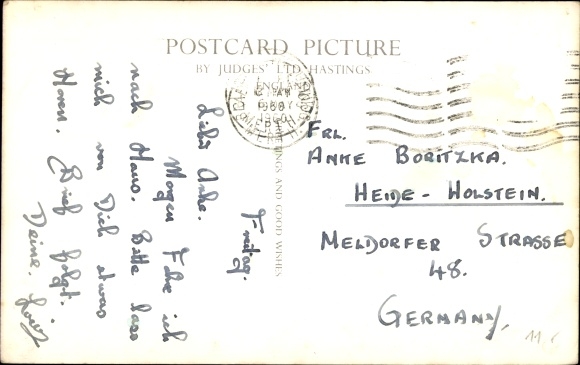 POSTCARD PICTURE
BY JUDGES' LTD HASTINGS
ENGLAND
GREETINGS AND GOOD WISHES
Freitag.
Liebe Anke.
Morgen Fahre ich
nach Haus. Bitte lass
mich von Dich etwas
Horen. Brief folgt.
Deine,
FRL.
ANKE BORITZKA.
HEIDE - HOLSTEIN.
MELDORFER STRASSE
48.
GERMANY,